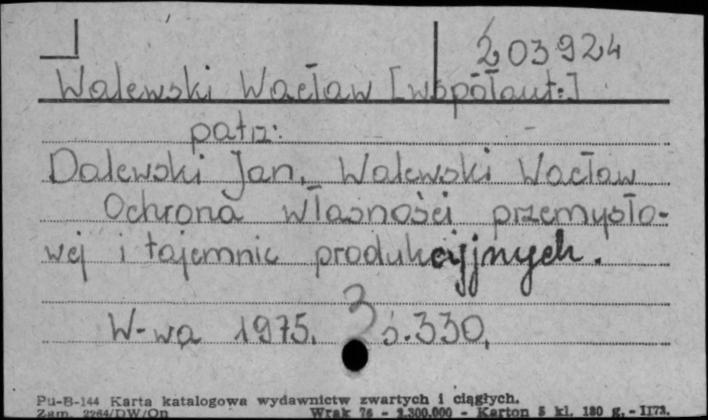 203924
Walewski Wacław [współaut.]
patrz:
Dalewski Jan, Walewski Wacław
Ochrona własności przemysło-
wej i tajemnic produkcyjnych.
W-wa 1975. s. 330.
3
Pu-B-144 Karta katalogowa wydawnictw zwartych i ciągłych.
Zam. 2264/DW/On Wrak 76 - 1.300.000 - Karton 5 kl. 180 g.